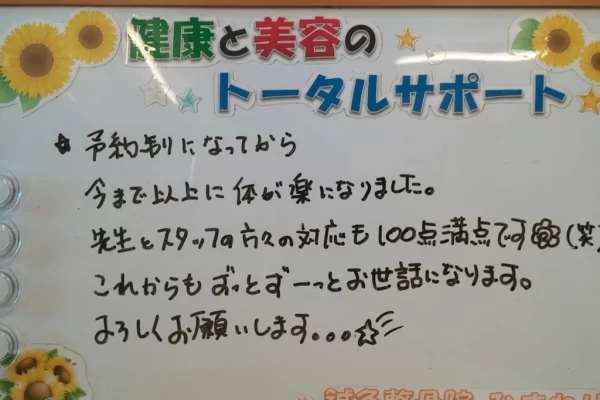 健康と美容の
トータルサポート
☆予約制になってから
今まで以上に体が楽になりました。
先生とスタッフの方々の対応も100点満点です(笑)
これからもずっとずーっとお世話になります。
よろしくお願いします。。。☆
鍼灸整骨院 ひまわり